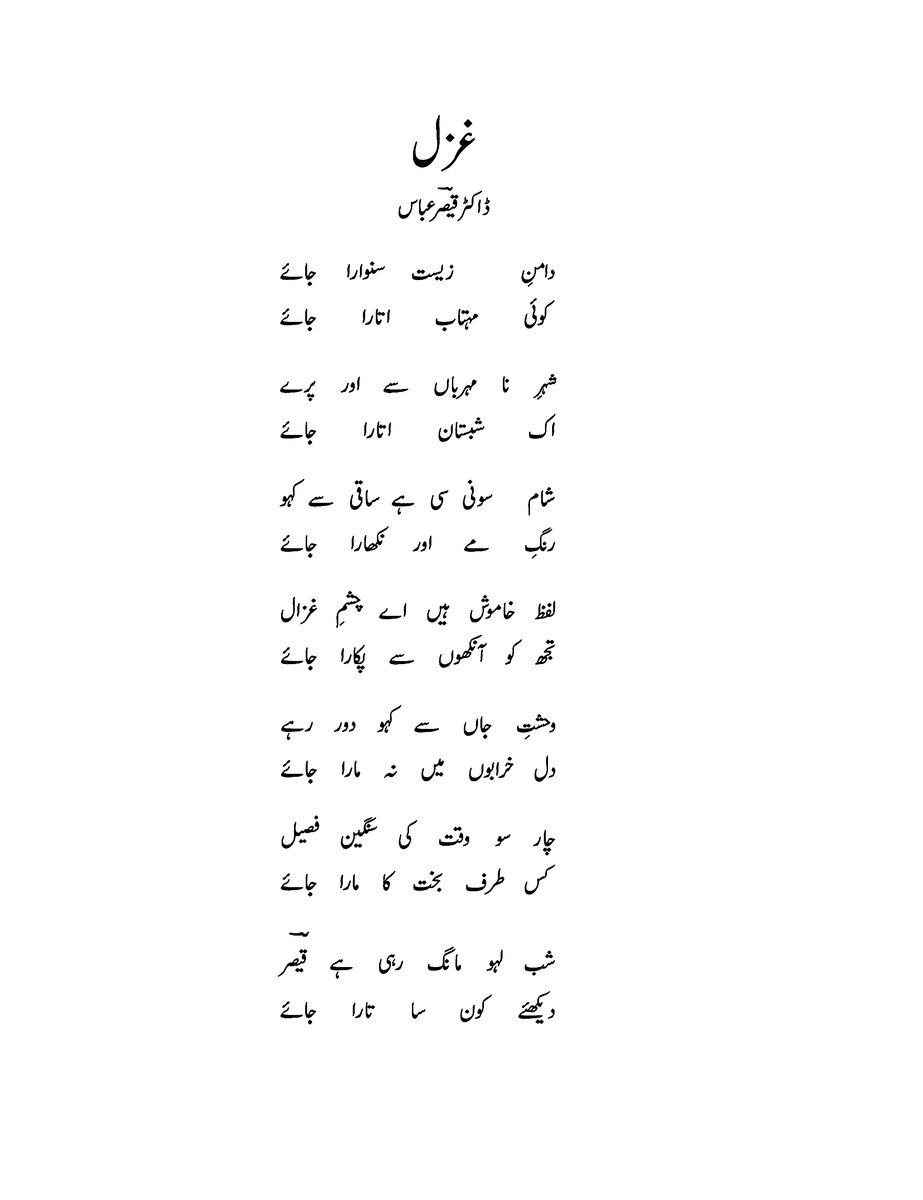 غزل
ڈاکٹر قیصؔر عباس
دامنِ زیست سنوارا جائے
کوئی مہتاب اتارا جائے
شہرِ نا مہرباں سے اور پرے
اک شبستان اتارا جائے
شام سونی سی ہے ساقی سے کہو
رنگِ مے اور نکھارا جائے
لفظ خاموش ہیں اے چشمِ غزال
تجھ کو آنکھوں سے پکارا جائے
وحشتِ جاں سے کہو دور رہے
دل خرابوں میں نہ مارا جائے
چار سو وقت کی سنگین فصیل
کس طرف بخت کا مارا جائے
شب لہو مانگ رہی ہے قیصؔر
دیکھئے کون سا تارا جائے